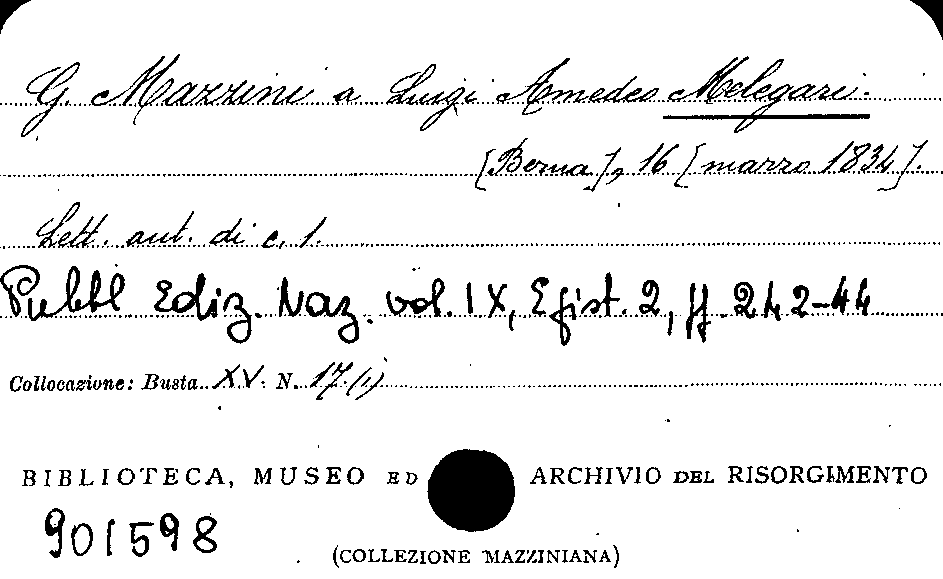 G. Mazzini a Luigi Amedeo Melegari.
[Berna], 16 [marzo 1834].
Lett. aut. di c. 1.
Pubbl Ediz. Naz. vol. IX, Epist. 2, pp. 242-44
Collocazione: Busta XV. N. 17.(1)
BIBLIOTECA, MUSEO ED ARCHIVIO DEL RISORGIMENTO
901598
(COLLEZIONE MAZZINIANA)